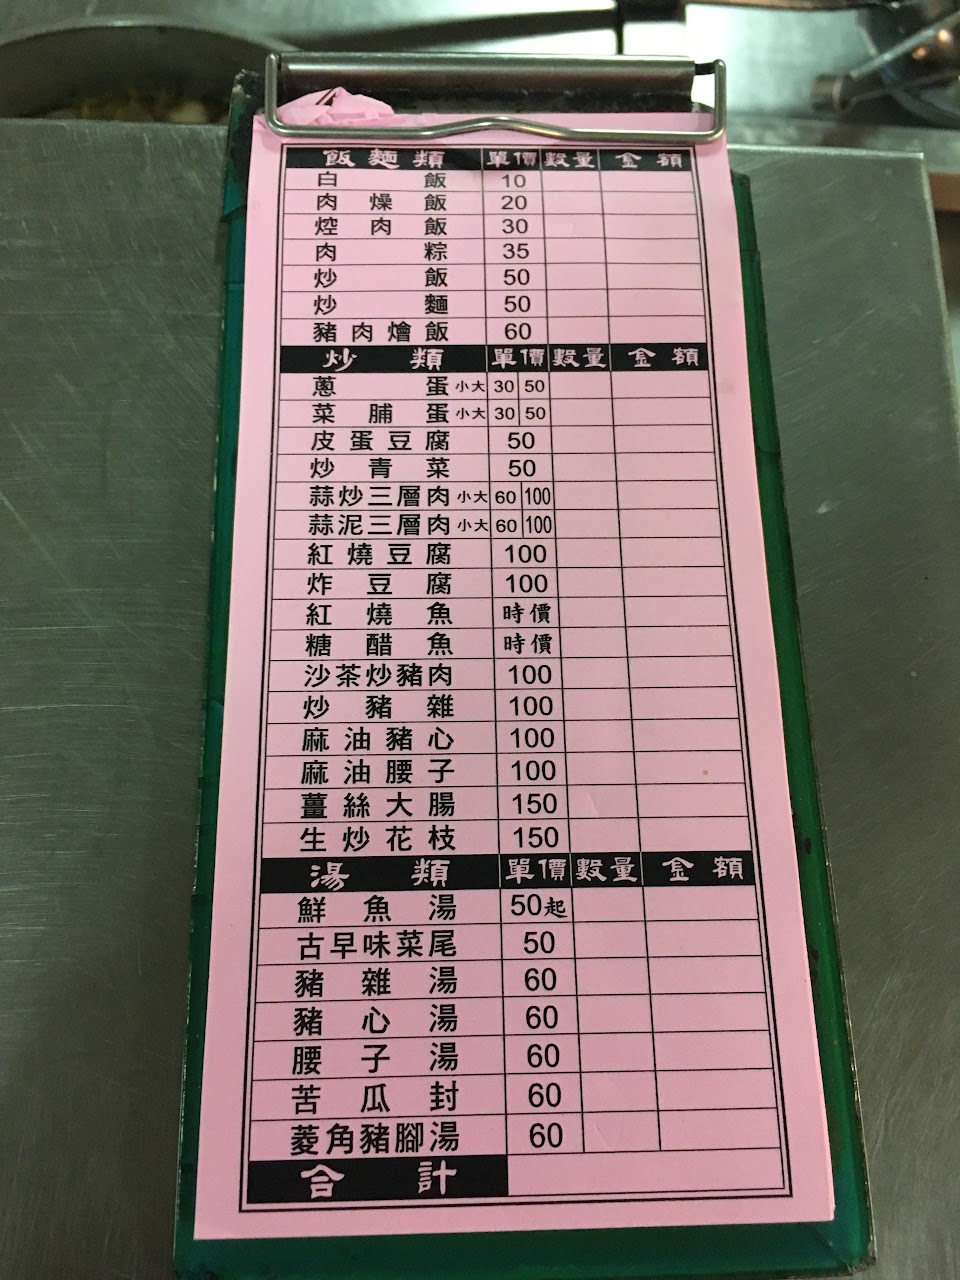 飯麵類 單價 數量 金額
白飯 10
肉燥飯 20
焢肉飯 30
肉粽 35
炒飯 50
炒麵 50
豬肉燴飯 60
炒類 單價 數量 金額
蔥蛋 小大 30 50
菜脯蛋 小大 30 50
皮蛋豆腐 50
炒青菜 50
蒜炒三層肉 小大 60 100
蒜泥三層肉 小大 60 100
紅燒豆腐 100
炸豆腐 100
紅燒魚 時價
糖醋魚 時價
沙茶炒豬肉 100
炒豬雜 100
麻油豬心 100
麻油腰子 100
薑絲大腸 150
生炒花枝 150
湯類 單價 數量 金額
鮮魚湯 50起
古早味菜尾 50
豬雜湯 60
豬心湯 60
腰子湯 60
苦瓜封 60
菱角豬腳湯 60
合計